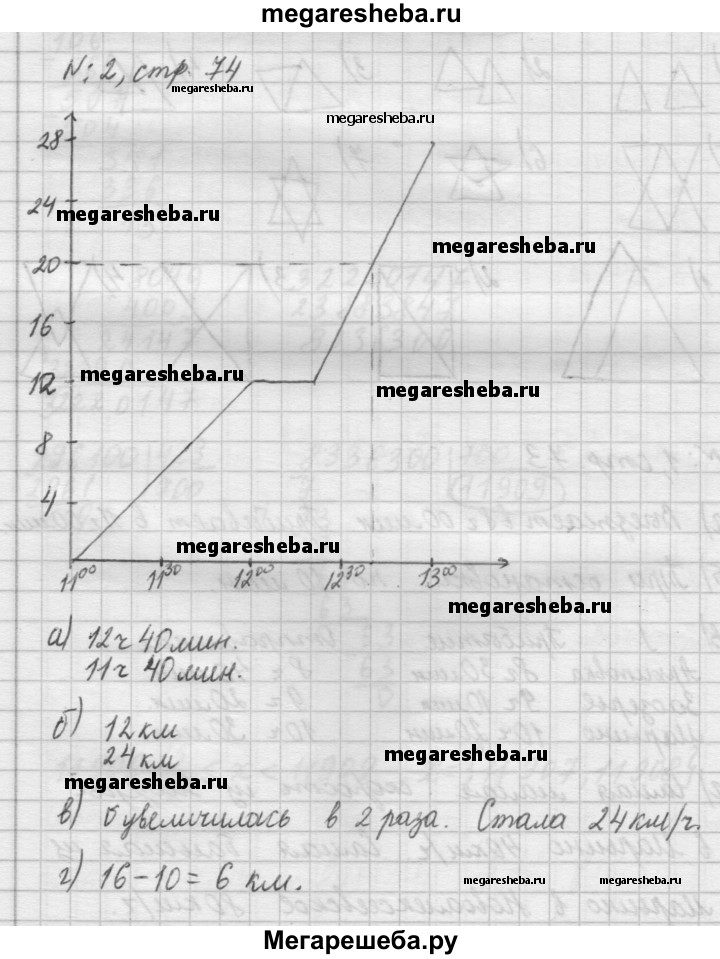 megaresheba.ru
N: 2, стр. 74
megaresheba.ru
megaresheba.ru
28
24
megaresheba.ru
megaresheba.ru
20
16
megaresheba.ru
12
megaresheba.ru
8
4
megaresheba.ru
11⁰⁰ 11³⁰ 12⁰⁰ 12³⁰ 13⁰⁰
megaresheba.ru
а) 12ч 40мин.
11ч 40мин.
б) 12км
24км
megaresheba.ru
megaresheba.ru
в) увеличилась в 2 раза. Стала 24км/ч.
г) 16-10= 6 км.
megaresheba.ru megaresheba.ru
Мегарешеба.ру